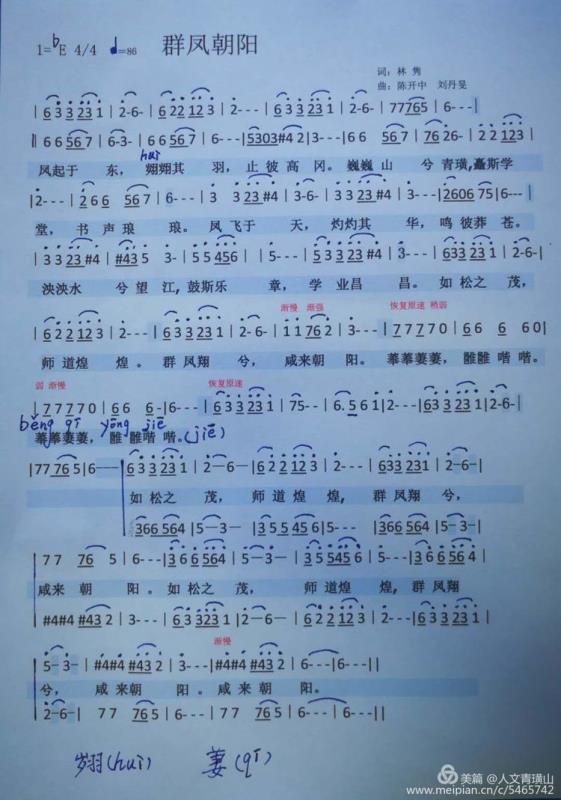 1=♭E 4/4 ♩=86 群凤朝阳
词：林 隽
曲：陈开中 刘丹旻
|633231|2-6-|622123|2---|633231|2-6-|777765|6---|
‖66567|6-3-|66567|6---|5303#42|3---|66567|7626-|22123|
huì
凤起于 东， 翙翙其 羽，止彼高 冈。巍巍山 兮青璜，矗斯学
|2---|266 567|6---|3 323#4|3---|3---|260675|6---|
堂， 书 声琅 琅。凤飞于 天，灼灼其 华，鸣彼莽 苍。
|3323#4|#435|3---|55456|5---|533231|2---|633231|2-6-|
泱泱水 兮望江，鼓斯乐 章， 学业昌 昌。如松之 茂，
渐慢 渐强 恢复原速 稍弱
|622123|2---|633231|2-6-|11762|3---|77770|66 6 60|
师道煌 煌。群凤翔 兮，咸来朝 阳。菶菶萋萋，雝雝喈喈。
弱 渐慢 恢复原速
|77770|66 6-|6---|633231|75--|6.561|2---|633231|2-6-|
běng qī yōng jiē
菶菶萋萋，雝雝喈喈。(jiē)
|77765|6---|633231|2-6-|622123|2---|633231|2-6-|
如松之 茂， 师道煌 煌， 群凤翔 兮，
366564|5-3-|355456|5---|366564|5-3-|
|77 765|6---|366564|5-3-|355456|5---|366564|
咸来 朝 阳。如松之 茂， 师道煌 煌，群凤翔
|#4#4 #432|6---|633231|2-6-|622123|2---|633231|
渐慢
5-3-|#4#4#432|3---|#4#4#432|6---|6---||
兮， 咸来朝 阳。咸来朝 阳。
2-6-|77765|6---|77765|6---|6---||
翙(huì) 萋(qī)
美篇 @人文青璜山
www.meipian.cn/c/5465742